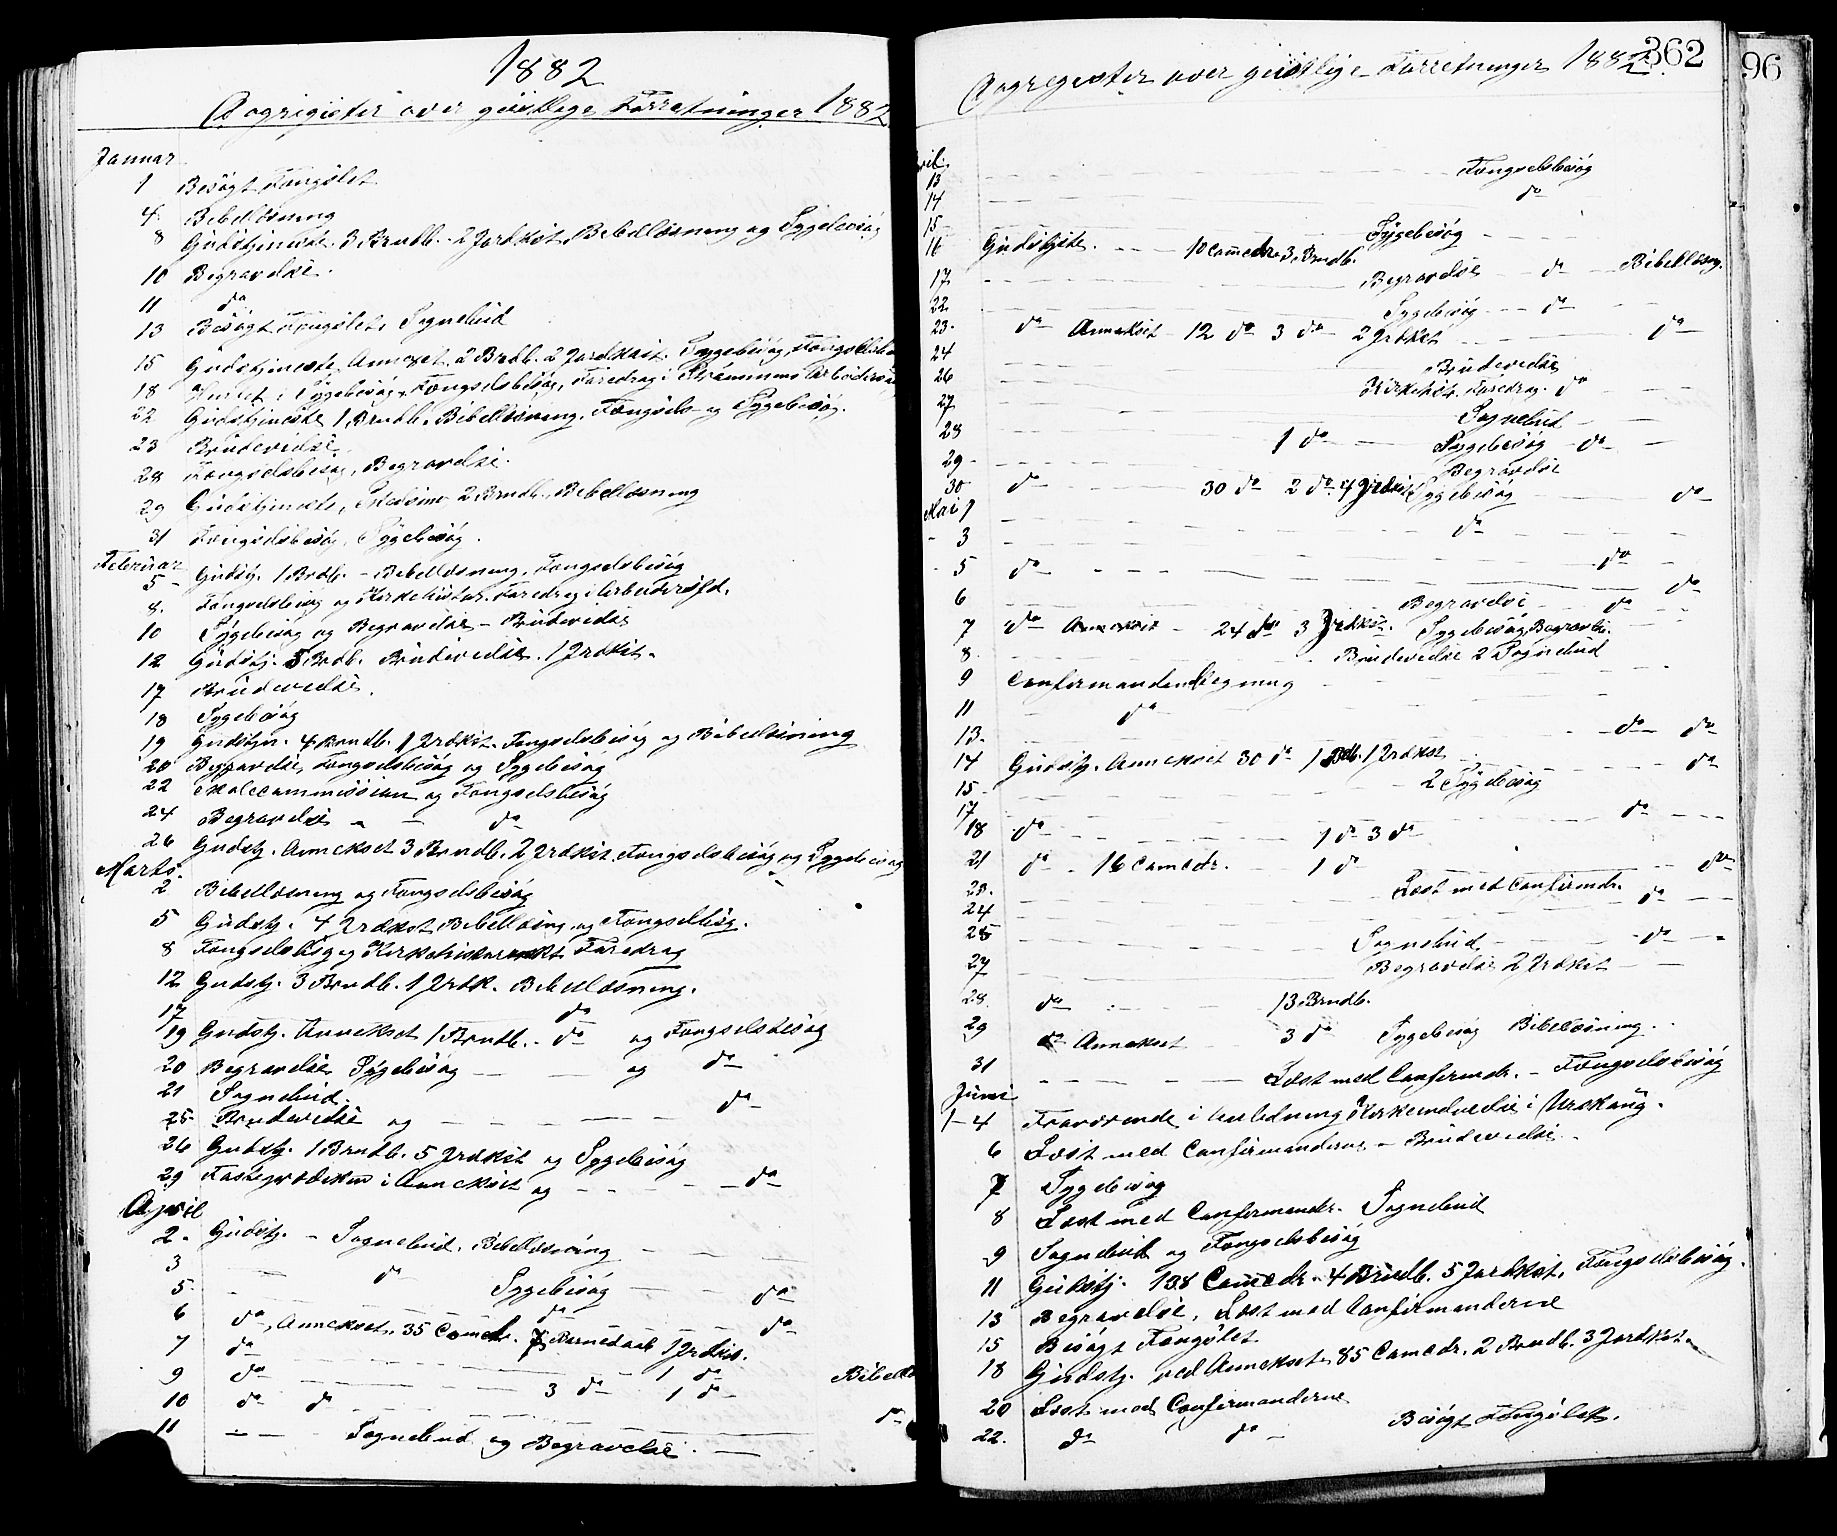 1882
Dagregister over geistlige Forretninger 1882
Januar
1 Besøgt Fængslet
4. Bibellæsning
8 Gudstjeneste. 3 Brndb. 2 Jordkst. Bibellæsning og Sygebesøg
10 Begravelse.
11 do
13 Besøgt Fængslet, Sognebud
15 Gudstjeneste, Annexet, 2 Brdb. 2 Jordkast. Sygebesøg,
18 i Sygebesøg, Fængselsbesøg, Foredrag i
22 Gudstjeneste 1 Brndb. Bibellæsning. Fængsels- og Sygebesøg.
23 Brudevielse
28 Fængselsbesøg, Begravelse.
29 Gudstjeneste, 2 Brndb., Bibellæsning
31 Fængselsbesøg, Sygebesøg.
Februar
5 Gudstj. 1 Brdb. – Bibellæsning, Fængselsbesøg
8. Fængselsbesøg og Kirkehistor. Foredrag i Arbeidersfd.
10 Sygebesøg og Begravelse – Brudevielse
12 Gudstj. 5 Brdb. Brudevielse. 1 Jrdkst.
17 Brudevielse.
18 Sygebesøg
19 Gudstjn. 4 Brndb. 1 Jrdkst. Fængselsbesøg og Bibellæsning
20 Begravelse, Fængselsbesøg og Sygebesøg
22 Skolecommission og Fængselsbesøg
24 Begravelse – – do
26 Gudstj. Annekset 3 Brndb. 2 Jrdkst. Fængselsbesøg og Sygebesøg
Marts.
2 Bibellæsning og Fængselsbesøg
5 Gudstj. 4 Jrdkst. Bibellæsng. og Fængselbsg.
8 Fængselsbsg og Kirkehistorisk Foredrag
12 Gudstj. 3 Brndb. 1 Jrdk. Bibellæsning.
17 do
19 Gudstj. Annekset 1 Brndb. – do og Fængselsbesøg
20 Begravelse Sygebesøg – – og do
21 Sognebud.
25 Brudevielse og – – – – do
26 Gudstj. 1 Brndb. 5 Jrdkst og Sygebesøg
29 Fasteprædiken i Annekset og – – – – do
April
2. Gudstj. – Sognebud. Bibellæsning – – –
3 – – do
5. – – Sygebesøg – – do
6 do, Annekset, 35 Comedr. do – – do
7 do – – 7 Barnedaab 1 Jrdkst.
9 do – – – – 1 do Bibel
10 do do – – 3 do 1 do do
11 – – – Sognebud og Begravelse. –
362
96
Dagregister over geistlige Forretninger 1882.
13 – – – Fængselsbesøg
14 – – – do
15 – – – Sygebesøg – –
16 Gudstjste. – – 10 Comedr. 3 Brndb.
17 – – – Begravelse – do – Bibellæsng.
22 – – – Sygebesøg – – do – –
23. do Annekset – 12 do 3 do 2 Jrdkst – – do
24 – – – Brudevielse
26 – – – Kirkehist. Foredrag. do
27 – – – Sognebud –
28 – – – 1 do – Sygebesøg – do – –
29 – – – Begravelse
30 do 30 do 2 do 4 Jrdkst Sygebesøg – – do
Mai 1 – – – do – –
3 – – –
5 do – – – do
6 – – – Begravelse – do
7 do Annekset – 24 do 3 Jrdkst. Sygebesøg, Begravlse. do
8. – – – Brudevielse 2 Sognebud
9 Confirmandindtegning – – –
11 – do – –
13. – – – do do
14 Gudstj. Annekset 30 do 1 Bdb. 1 Jrdkst – – do
15 – – – 2 Sygebesøg
17 – – – do – –
18 do – – 1 do 3 do
21 do – 16 Comedr. – – 1 do – – do
23. – – – Læst med Confirmdr.
24 – – – do – –
25 – – – Sognebud – – do –
27 – – – Begravelse 2 Jrdkst – –
28. do – – 13 Brndb.
29 do Annekset 3 do Sygebesøg Bibelæsning.
31 – – – Læst med Confirmdr. – Fængselsbesøg
Juni
1–4 Fraværende i Anledning Kirkeindvielse i Urskoug.
6 Læst med Confirmanderne – Brudevielse
7 Sygebesøg
8 Læst med Confirmandr. Sognebud
9 Sognebud og Fængselsbesøg
11 Gudstj. 138 Comedr. 4 Brndb. 5 Jordkst, Fængselsbesøg.
13 Begravelse, Læst med Confirmanderne
15 Besøgt Fængslet
18 Gudstj. ved Annekset. 85 Comedr. 2 Brndb. 3 Jordkst.
20 Læst med Confirmanderne
22. do do – Besøgt Fængslet.